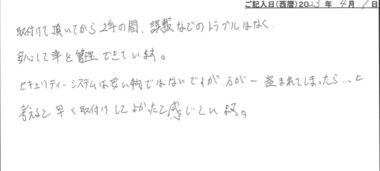 ご記入日(西暦)2023年 4月 1日
取付けて頂いてから2年の間、誤報などのトラブルはなく、
安心して車を管理できています。
セキュリティーシステムは安い物ではないですが、万が一盗まれてしまったら…と
考えると早く取付けしてよかったと感じています。